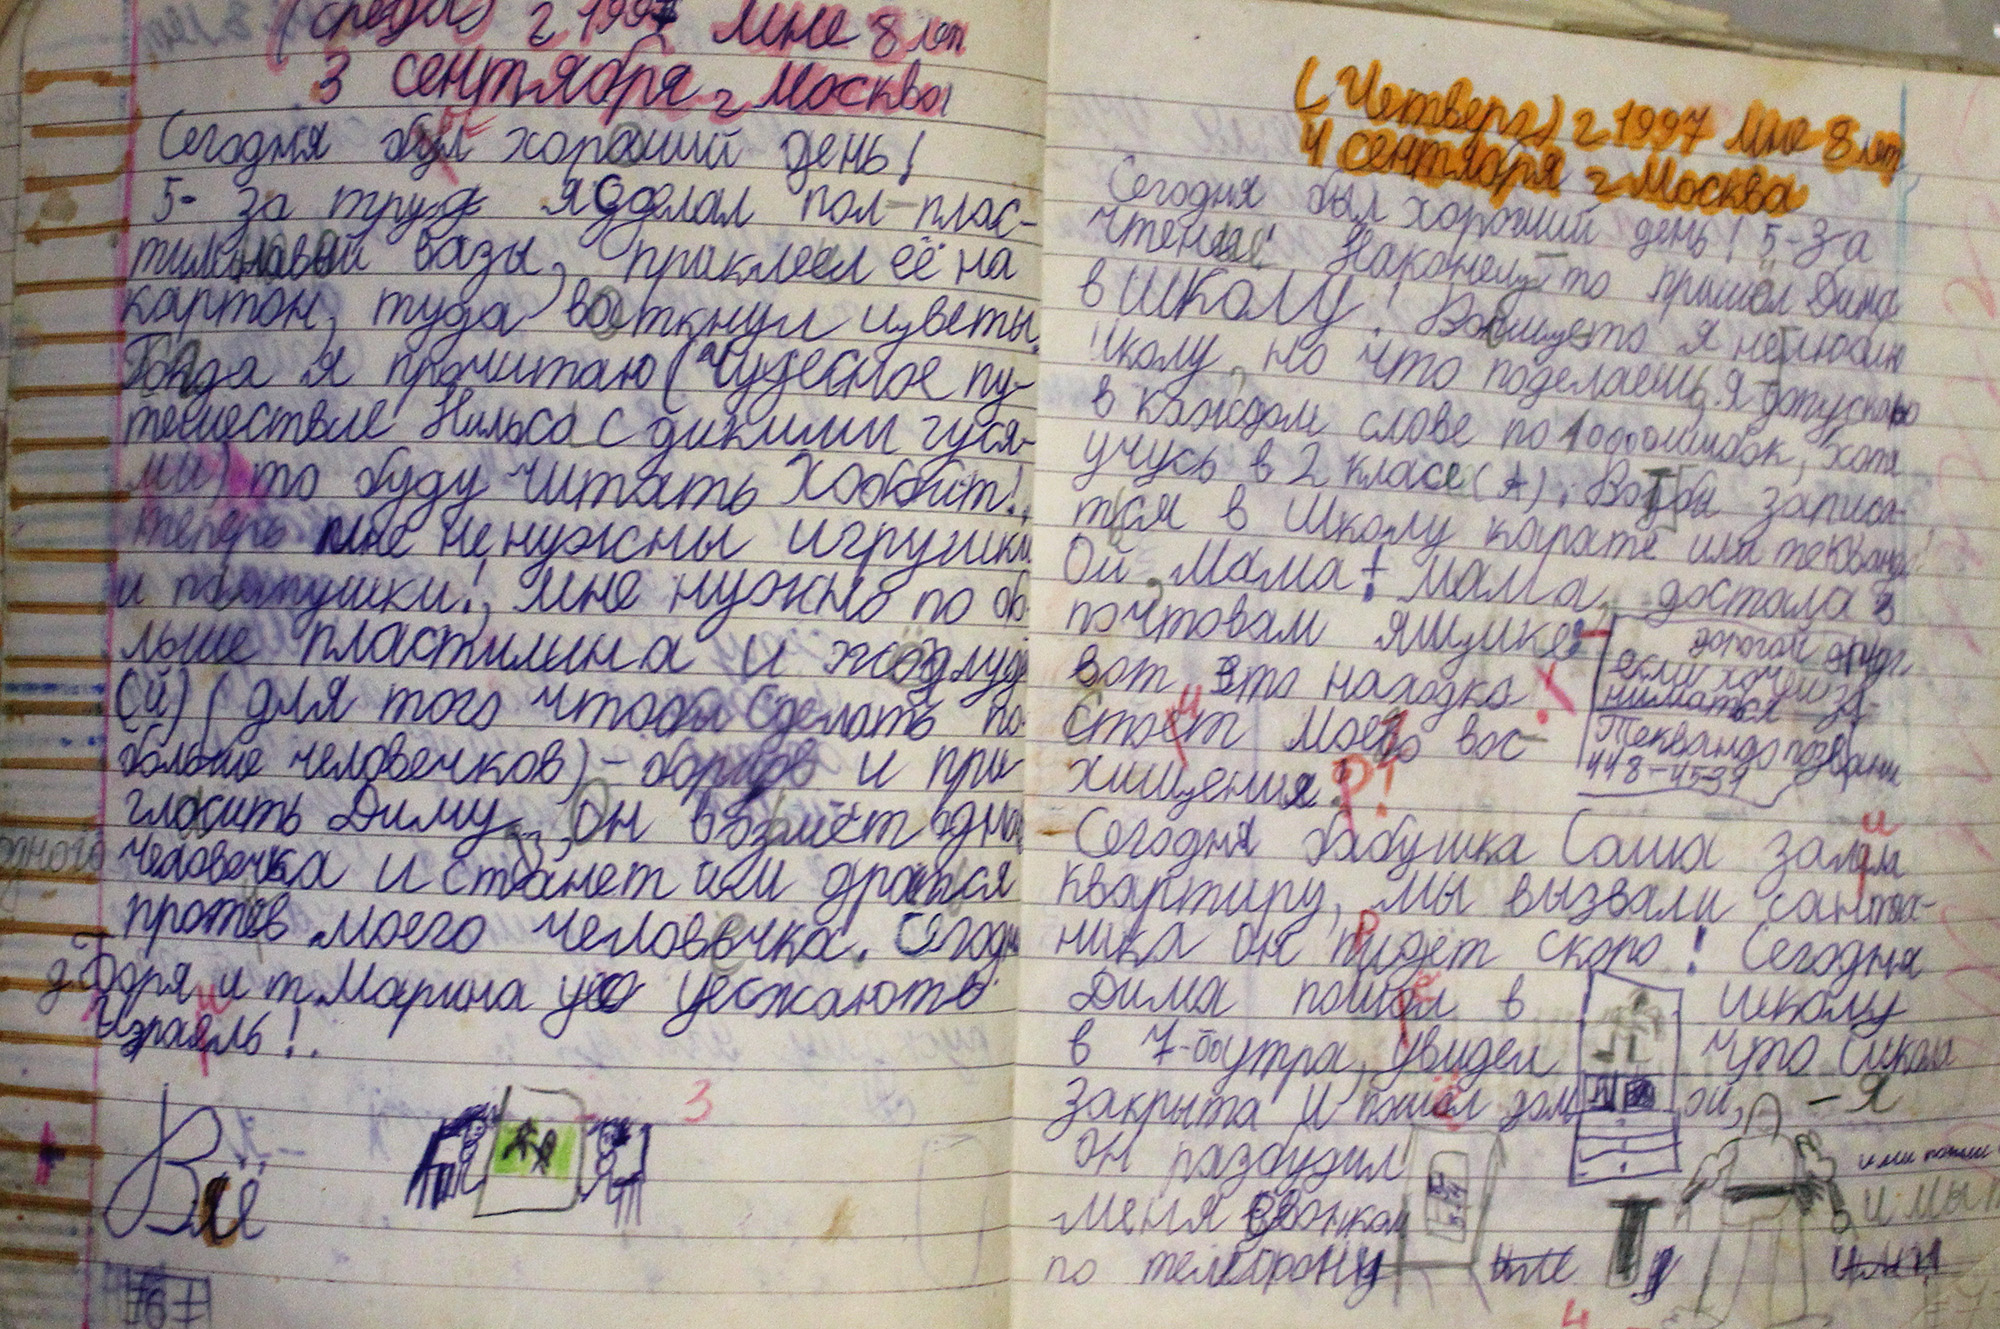 (среда) г 1997 Мне 8 лет
3 сентября г Москва
Сегодня был хороший день!
5- за труд я сделал пол-плас-
тилиновой вазы, приклеел её на
картон, туда воткнул цветы.
Когда я прочитаю (Чудесное пу-
тешествие Нильса с дикими гуся-
ми) то буду читать Хоббит!.
теперь мне не нужны игрушки
и побрякушки!, мне нужно по бо-
льше пластилина и жолудь
(й) (для того чтобы сделать по
больше человечков) - борцов и при
гласить Диму, он возмёт одно
одного человечка и станет им драться
против моего человечка. Сегодня
д Боря и т. Марина уезжают в
Израиль!.
Всё
3
(Четверг) г 1997 Мне 8 лет
4 сентября г Москва
Сегодня был хороший день! 5-за
чтение! Наконец то пришол Дима
в школу! Вообщето я нелюблю
школу, но что поделаешь. Я допускаю
в каждом слове по 1000 ошибок, хотя
учусь в 2 класе (А). Вот бы записа-
тся в школу карате или теквандо!
Ой, Мама! Мама, достала в
почтовам ящике:
дорогой друг
если хочеш за-
ниматься
Теквандо позвони
448-4537
вот это находка
стоет моего вос-
хищения
Сегодня бабушка Саша залила
квартиру, мы вызвали сантех-
ника он придёт скоро! Сегодня
Дима пошол в школу
в 7-бутра, увидел что школа
закрыта и пошол дом ой, - Я
Он разбудил
меня звонком
по телефону
или пошли
и мы
4